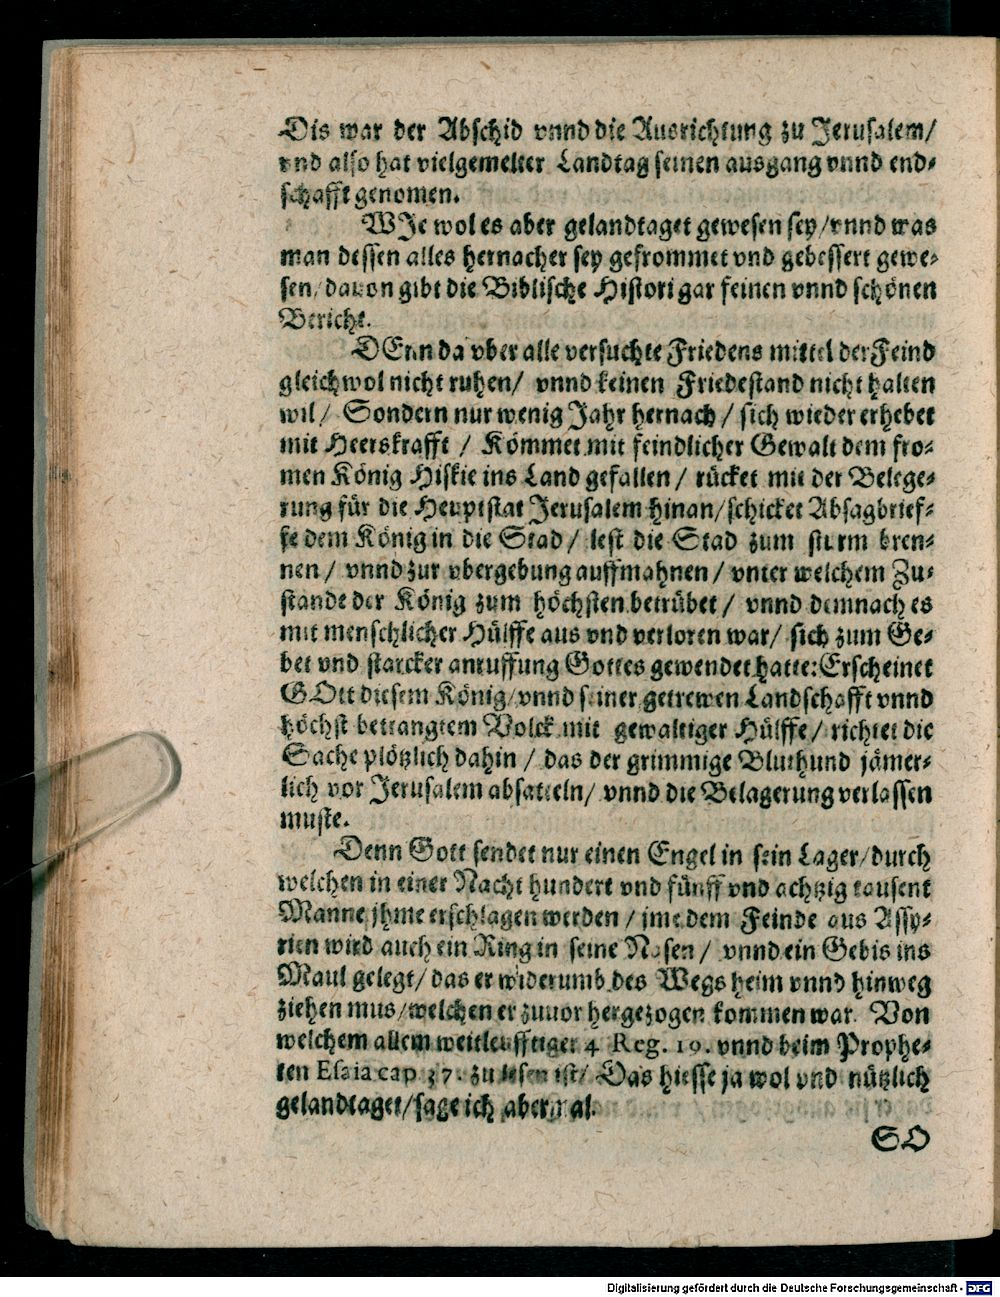 Dis war der Abschid vnnd die Ausrichtung zu Jerusalem/
vnd also hat vielgemelter Landtag seinen ausgang vnnd end⸗
schafft genomen.
WJe wol es aber gelandtaget gewesen sey/vnnd was
man dessen alles hernacher sey gefrommet vnd gebessert gewe⸗
sen/dauon gibt die Biblische Histori gar feinen vnnd schönen
Bericht.
DEnn da vber alle versuchte Friedens mittel der Feind
gleichwol nicht ruhen/ vnnd keinen Friedestand nicht halten
wil/ Sondern nur wenig Jahr hernach/ sich wieder erhebet
mit Heerskrafft / Kömmet mit feindlicher Gewalt dem fro⸗
men König Hiskie ins Land gefallen/ rücket mit der Belege⸗
rung für die Heuptstat Jerusalem hinan/schicket Absagbrief⸗
fe dem König in die Stad/ lest die Stad zum sturm bren⸗
nen/ vnnd zur vbergebung auffmahnen/ vnter welchem Zu⸗
stande der König zum höchsten betrübet/ vnnd demnach es
mit menschlicher Hülffe aus vnd verloren war/ sich zum Ge⸗
bet vnd starcker anruffung Gottes gewendet hatte: Erscheinet
GOtt diesem König/vnnd seiner getrewen Landschafft vnnd
höchst betrangtem Volck mit gewaltiger Hülffe/ richtet die
Sache plötzlich dahin / das der grimmige Bluthund jämer⸗
lich vor Jerusalem absatteln/ vnnd die Belagerung verlassen
muste.
Denn Gott sendet nur einen Engel in sein Lager/durch
welchen in einer Nacht hundert vnd fünff vnd achtzig tausent
Manne jhme erschlagen werden / jme dem Feinde aus Assy⸗
rien wird auch ein Ring in seine Nasen/ vnnd ein Gebis ins
Maul gelegt/ das er widerumb des Wegs heim vnnd hinweg
ziehen mus/welchen er zuuor hergezogen kommen war. Von
welchem allem weitleufftiger 4 Reg. 19. vnnd beim Prophe⸗
ten Esaia cap 37. zu lesen ist/ Das hiesse ja wol vnd nützlich
gelandtaget/sage ich abermal.
SO
Digitalisierung gefördert durch die Deutsche Forschungsgemeinschaft - DFG